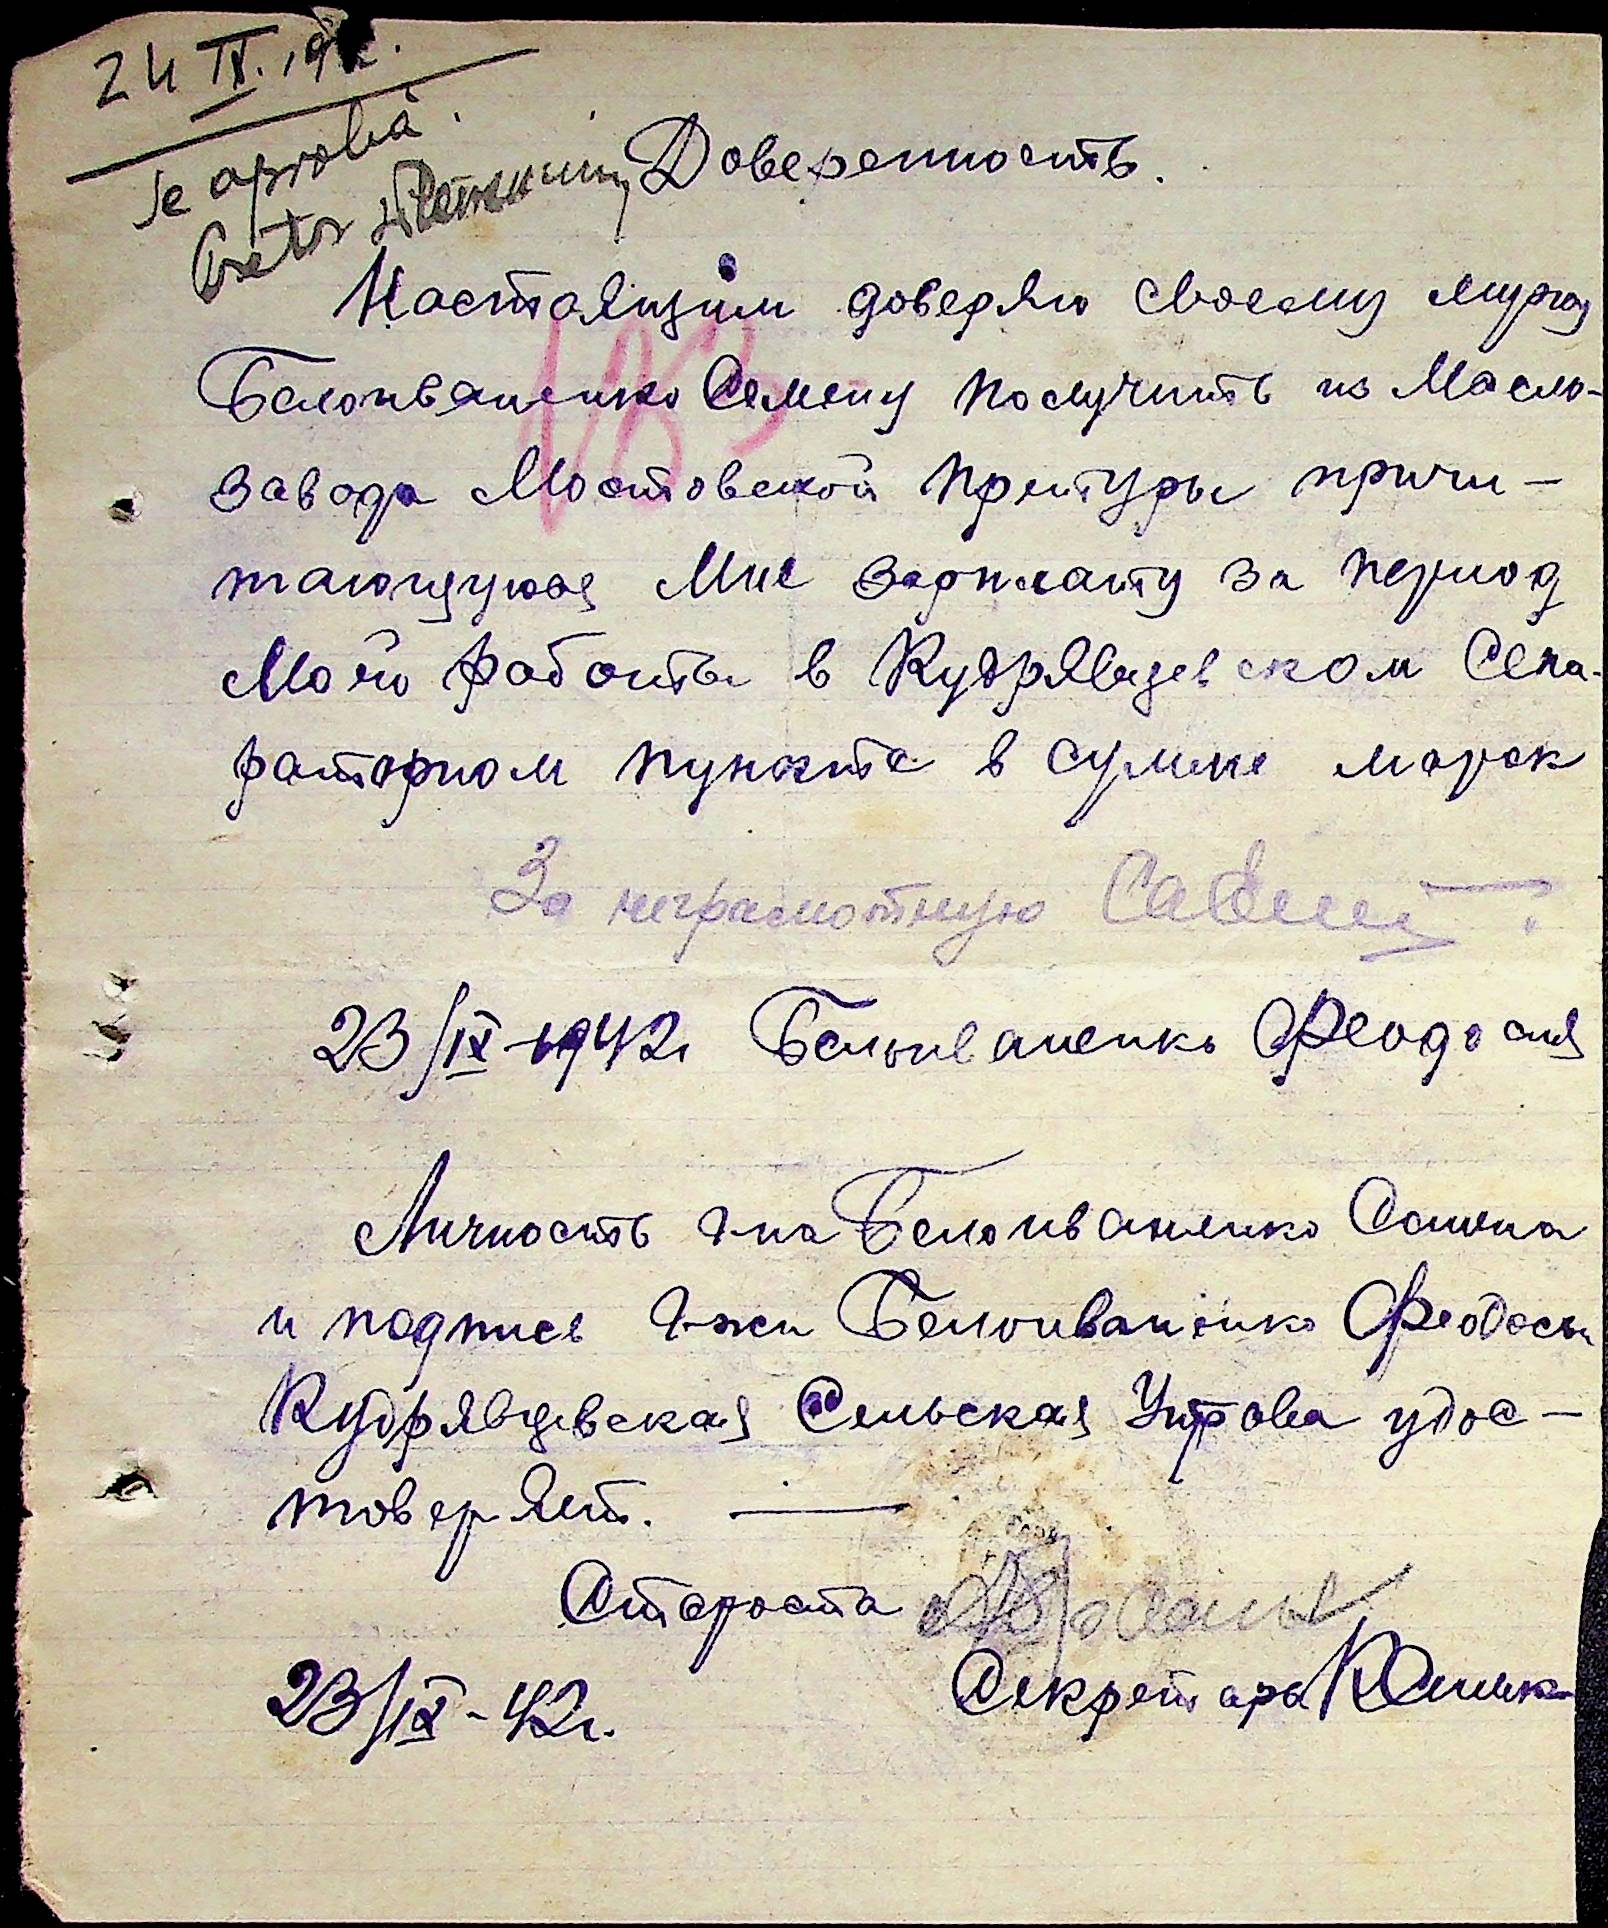 24 IX. 1942.
Se aprobă.
Доверенность.
Настоящим доверяю своему мужу
Белоиваненко Семену получить из Масло-
завода Мостовской претуры причи-
тающуюся мне зарплату за период
моею работы в Кудрявцевском Сепа-
раторном пункте в сумме марок
163
За неграмотную
23/IX-1942г Белоиваненко Феодосия
Личность г-на Белоиваненко Самена
и подпись г-жи Белоиваненко Феодосьи
Кудрявцевская Сельская Управа удос-
товеряет.
Староста
Секретарь
23/IX-42г.